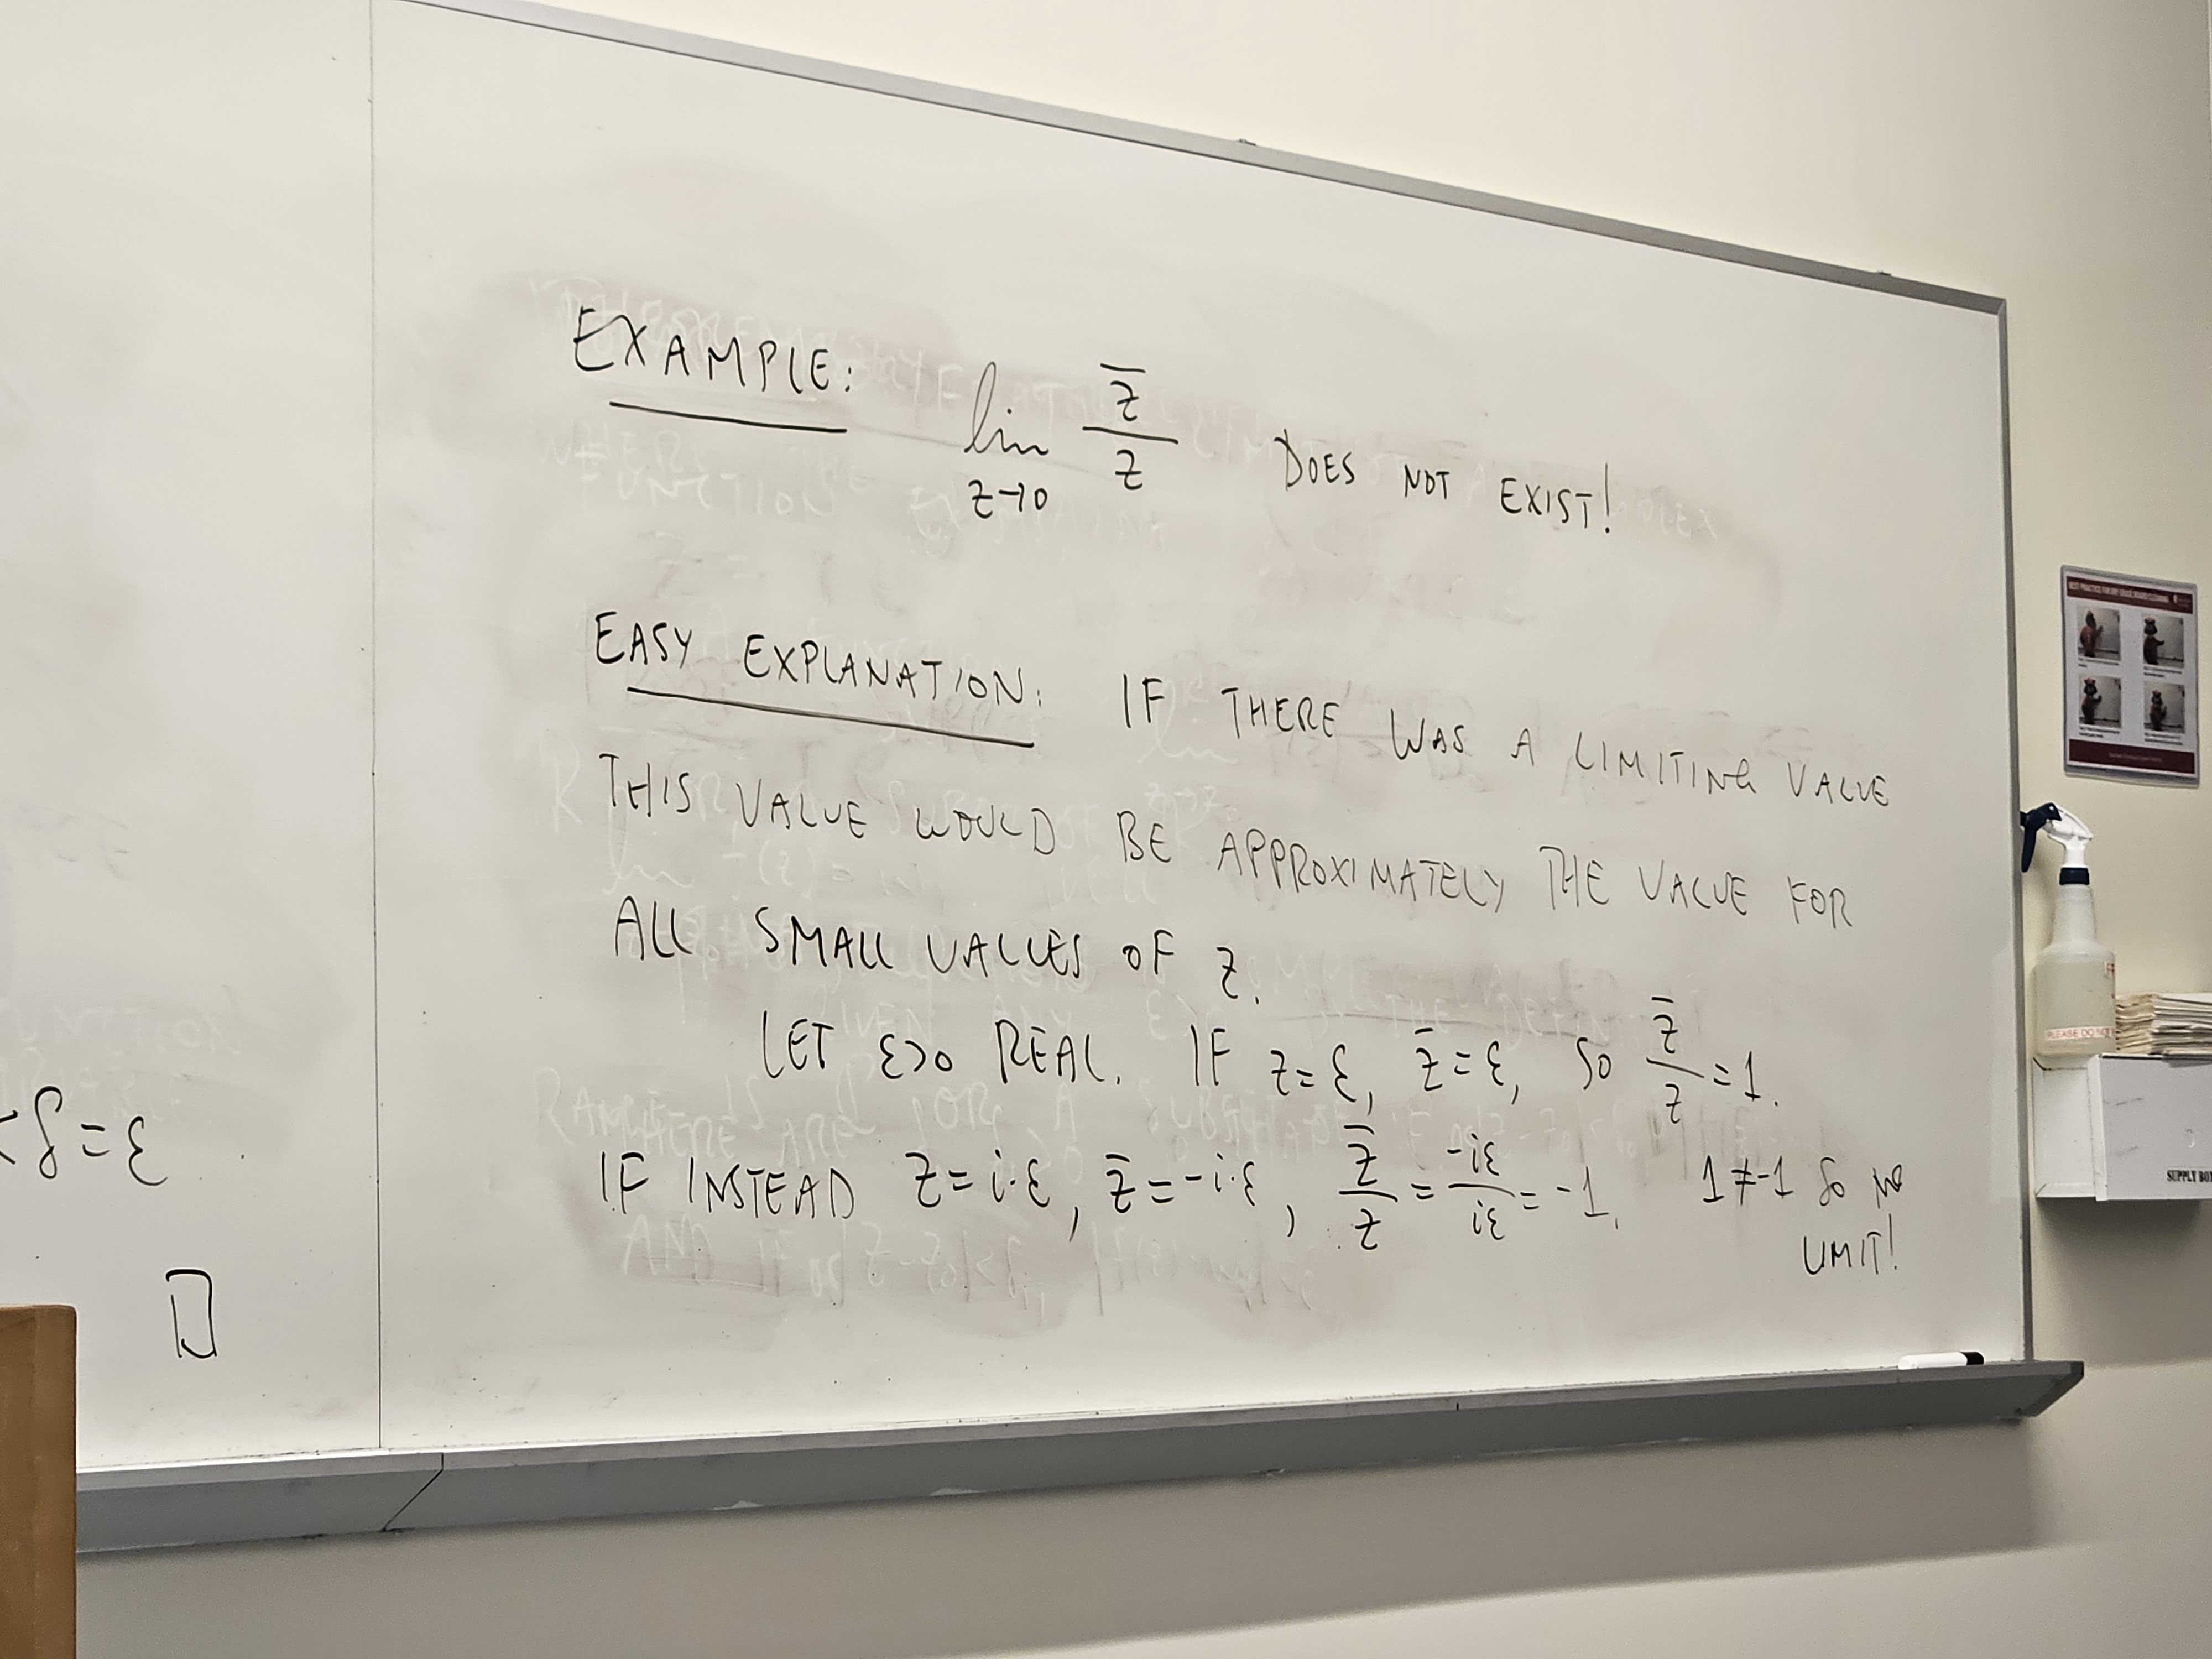 EXAMPLE: lim z→0 z̅/z DOES NOT EXIST!
EASY EXPLANATION: IF THERE WAS A LIMITING VALUE
THIS VALUE WOULD BE APPROXIMATELY THE VALUE FOR
ALL SMALL VALUES OF z.
LET ε>0 REAL. IF z=ε, z̅=ε, SO z̅/z=1.
IF INSTEAD z=i·ε, z̅=-i·ε, z̅/z=-iε/iε=-1. 1≠-1 SO NO
LIMIT!
<δ=ε
BEST PRACTICE FOR DRY ERASE BOARD CLEANING
PLEASE DO NOT
SUPPLY BOX